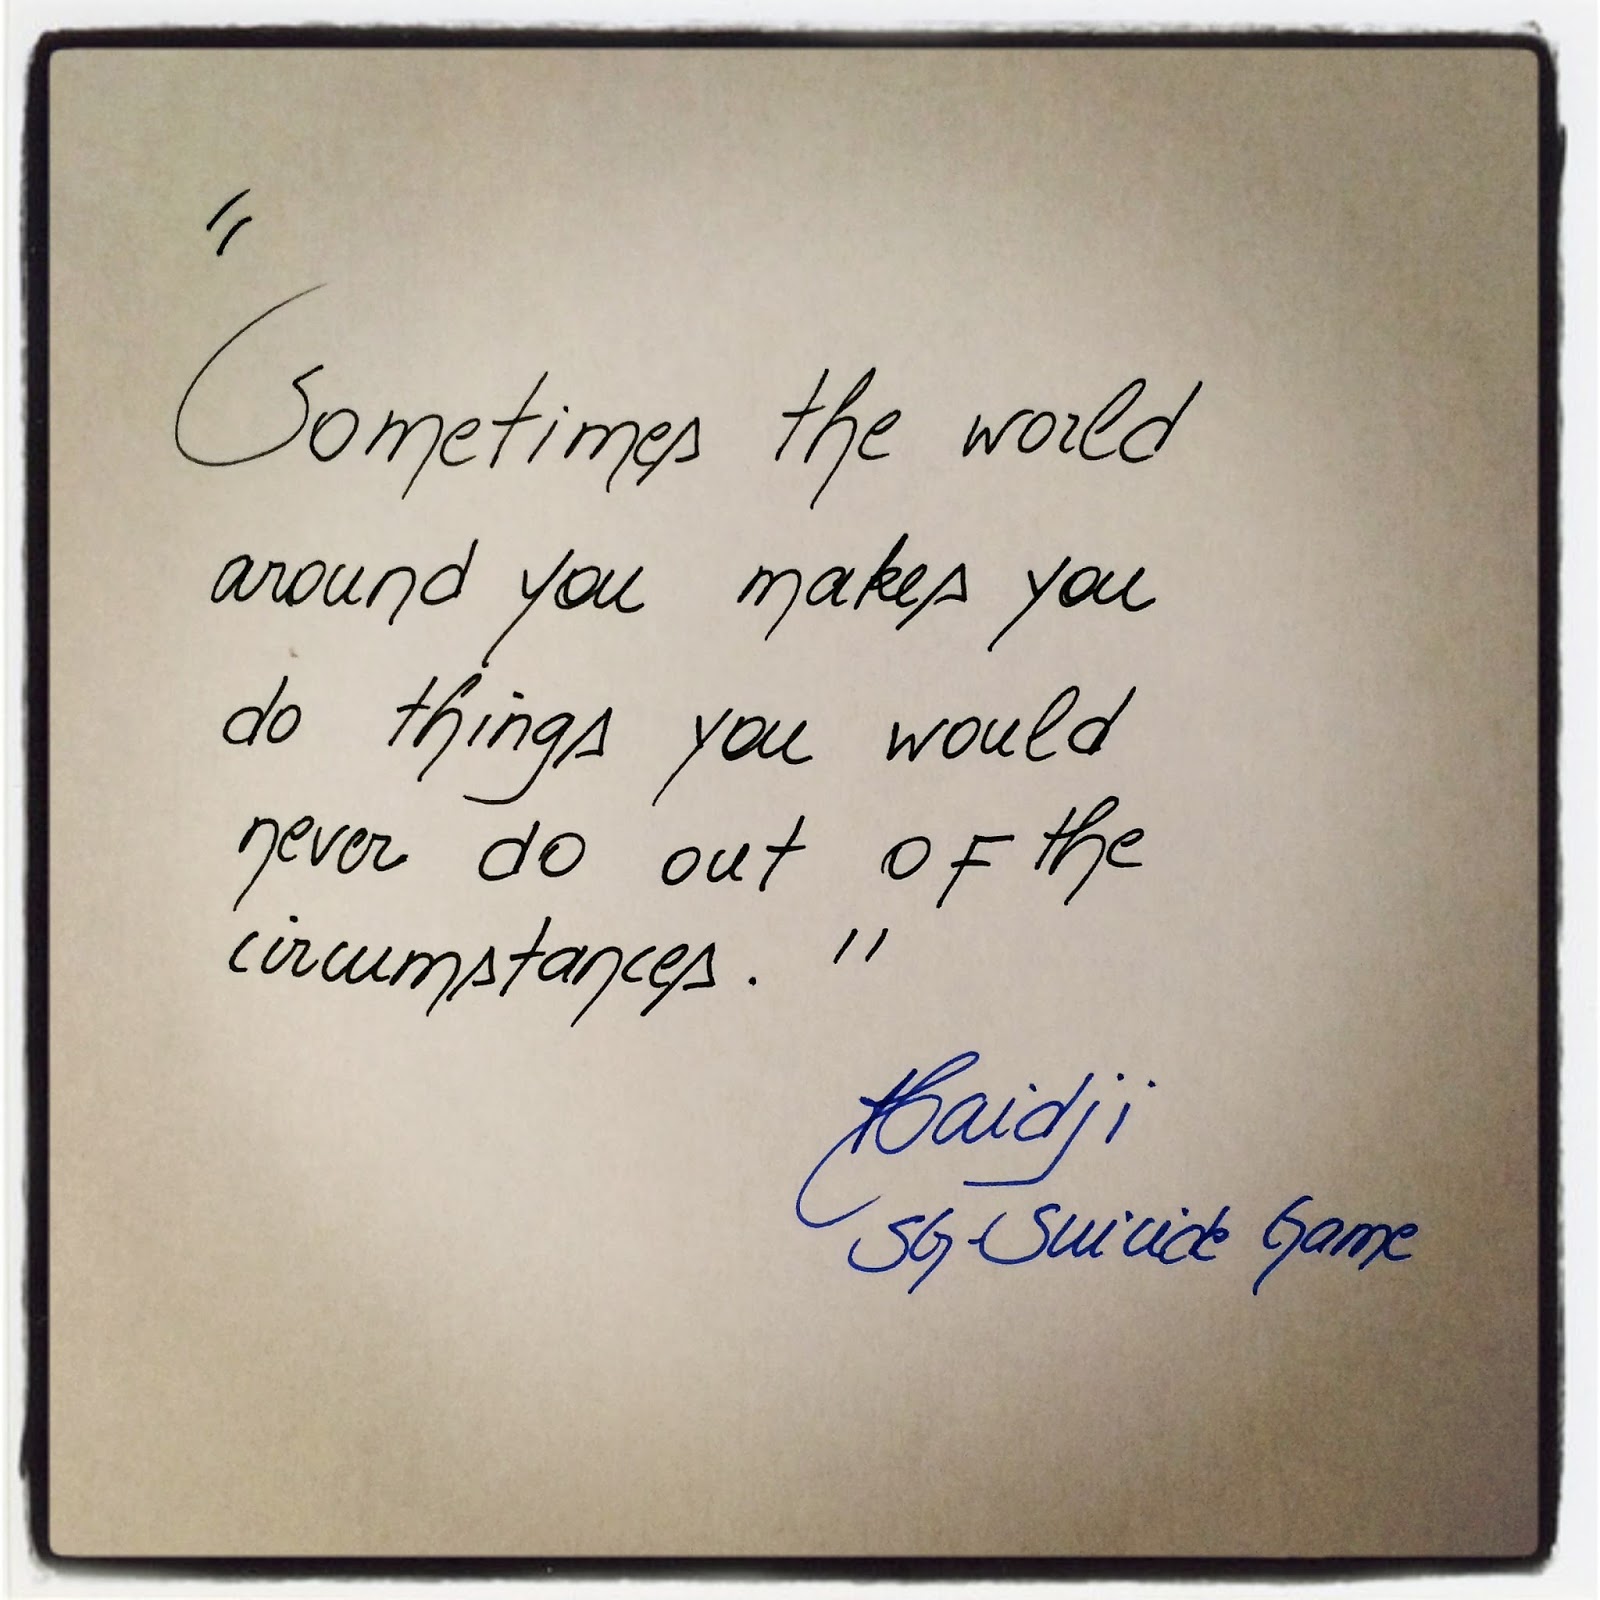 "
Sometimes the world
around you makes you
do things you would
never do out of the
circumstances. "
Haidji
SG-Suicide Game